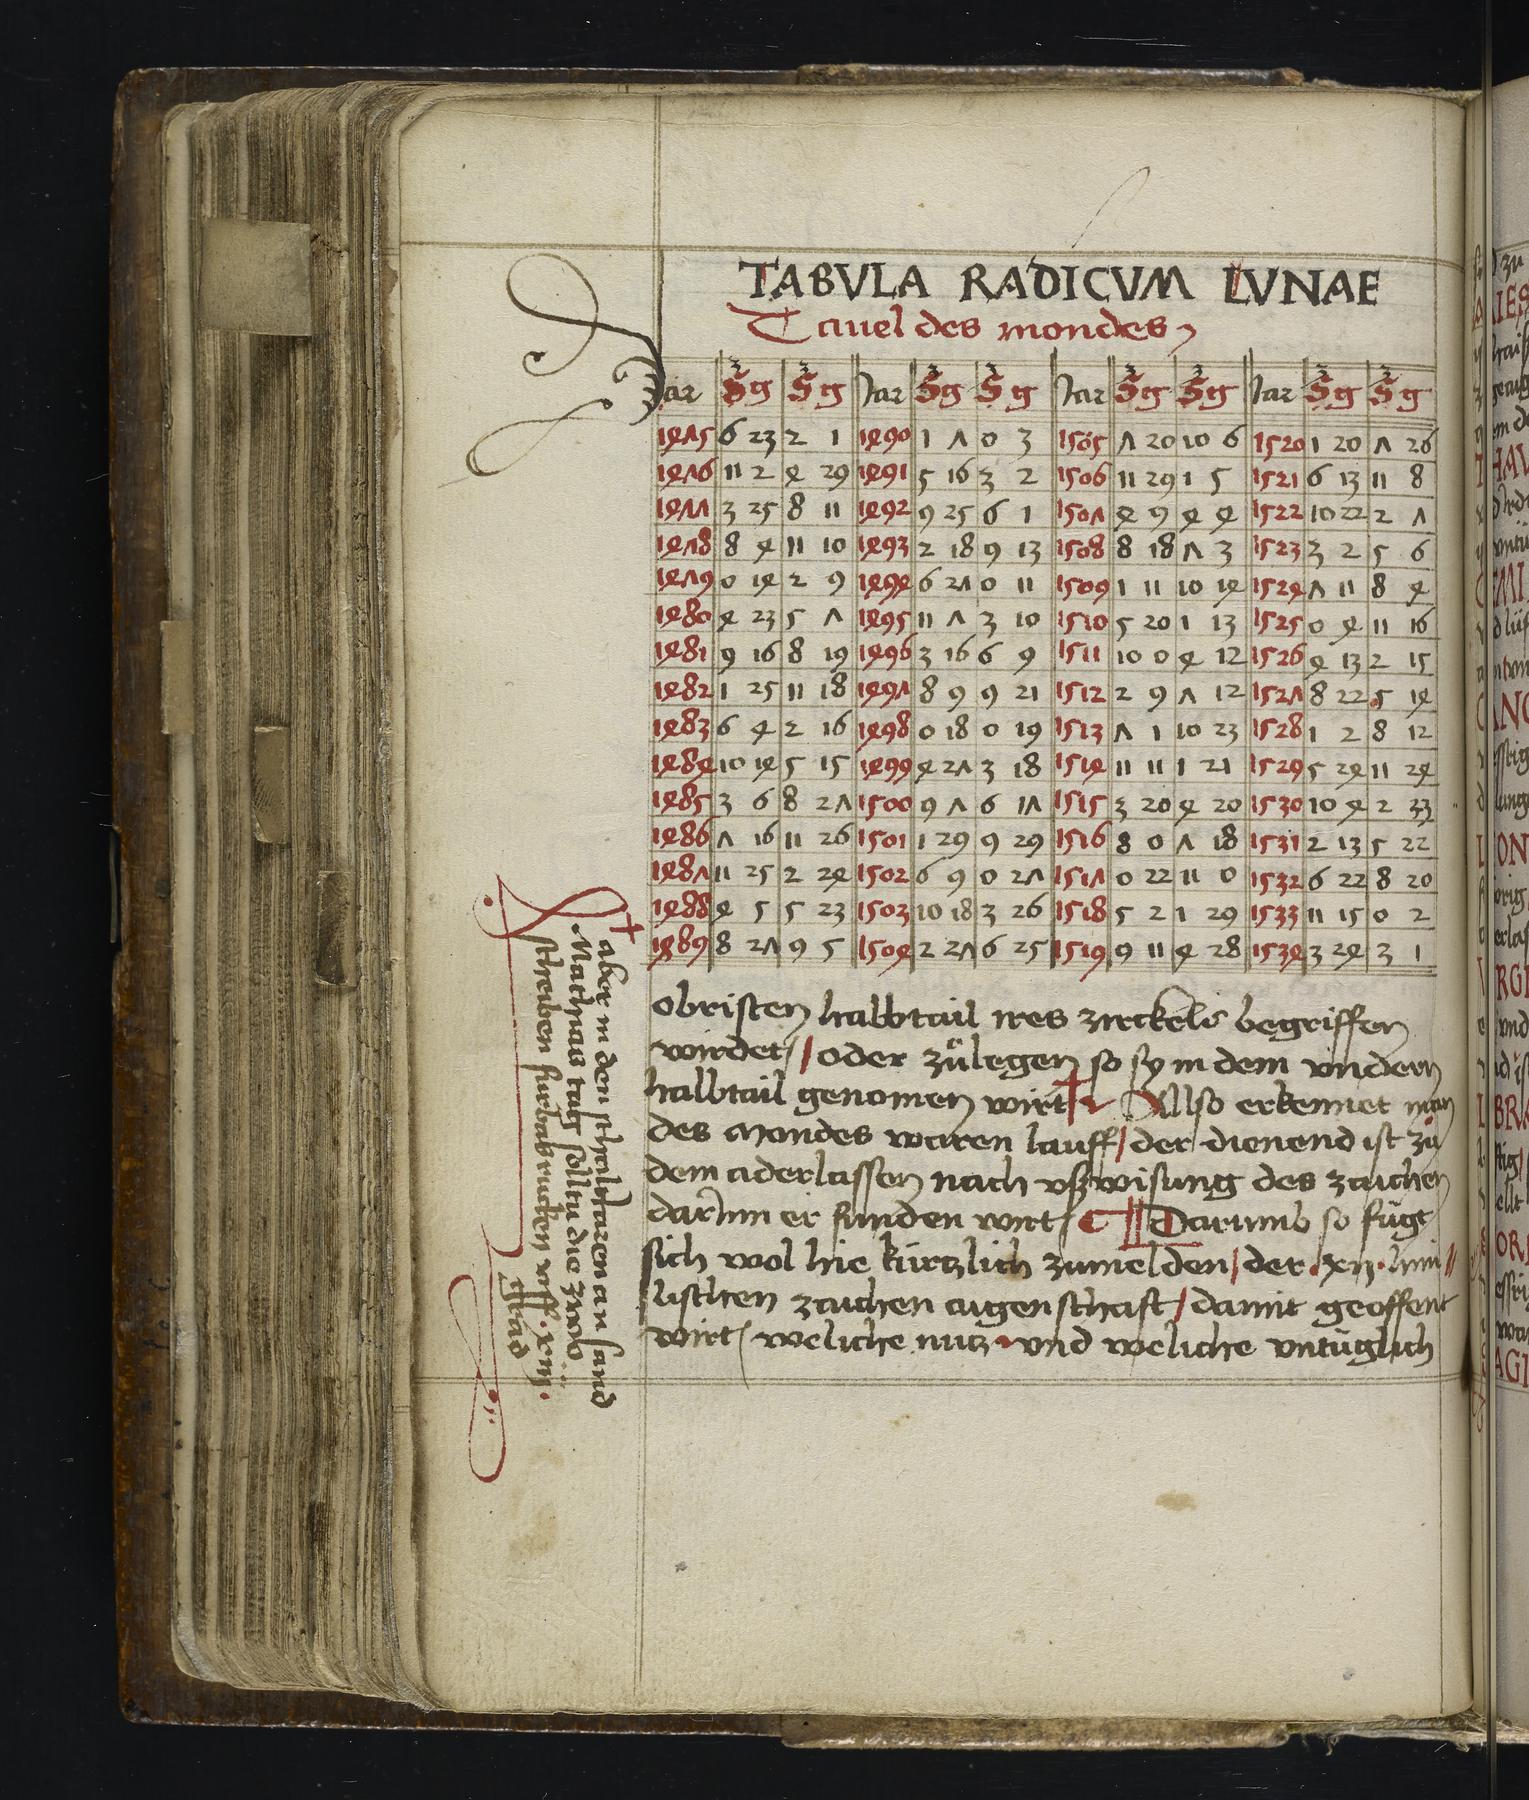 TABVLA RADICVM LVNAE
Tauel des mondes
Jar S g S g Jar S g S g Jar S g S g Jar S g S g
1475 6 23 2 1 1490 1 7 0 3 1505 7 20 10 6 1520 1 20 7 26
1476 11 2 4 29 1491 5 16 3 2 1506 11 29 1 5 1521 6 13 11 8
1477 3 25 8 11 1492 9 25 6 1 1507 4 9 4 4 1522 10 22 2 7
1478 8 4 11 10 1493 2 18 9 13 1508 8 18 7 3 1523 3 2 5 6
1479 0 14 2 9 1494 6 27 0 11 1509 1 11 10 14 1524 7 11 8 4
1480 4 23 5 7 1495 11 7 3 10 1510 5 20 1 13 1525 0 4 11 16
1481 9 16 8 19 1496 3 16 6 9 1511 10 0 4 12 1526 4 13 2 15
1482 1 25 11 18 1497 8 9 9 21 1512 2 9 7 12 1527 8 22 5 14
1483 6 4 2 16 1498 0 18 0 19 1513 7 1 10 23 1528 1 2 8 12
1484 10 14 5 15 1499 4 27 3 18 1514 11 11 1 21 1529 5 24 11 24
1485 3 6 8 27 1500 9 7 6 17 1515 3 20 4 20 1530 10 4 2 33
1486 7 16 11 26 1501 1 29 9 29 1516 8 0 7 18 1531 2 13 5 22
1487 11 25 2 24 1502 6 9 0 27 1517 0 22 11 0 1532 6 22 8 20
1488 4 5 5 23 1503 10 18 3 26 1518 5 2 1 29 1533 11 15 0 2
1489 8 27 9 5 1504 2 27 6 25 1519 9 11 4 28 1534 3 24 3 1
obristen halbtail ires zirckels begriffen
wirdet / oder zůlegen so sy in dem vndern
halbtail genomen wirt † Allso erkennet man
des Mondes waren lauff / der dienend ist zů
dem aderlassen nach vßwisung des zaichen
darinn er funden wirt / Darumb so fügt
sich wol hie kürtzlich zumelden / der .xij. himi
lischen zaichen aigenschaft / damit geoffent
wirt / weliche nutz vnd weliche vntüglich
† aber in den schaltiaren an sand
Mathias tag solltu die zwöü
striben fürhabrucken vff .xiij.
grad